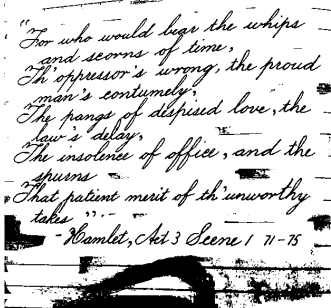 "For who would bear the whips
and scorns of time,
Th'oppressor's wrong, the proud
man's contumely,
The pangs of despised love, the
law's delay,
The insolence of office, and the
spurns
That patient merit of th'unworthy
takes"
- Hamlet, Act 3 Scene 1 71-75